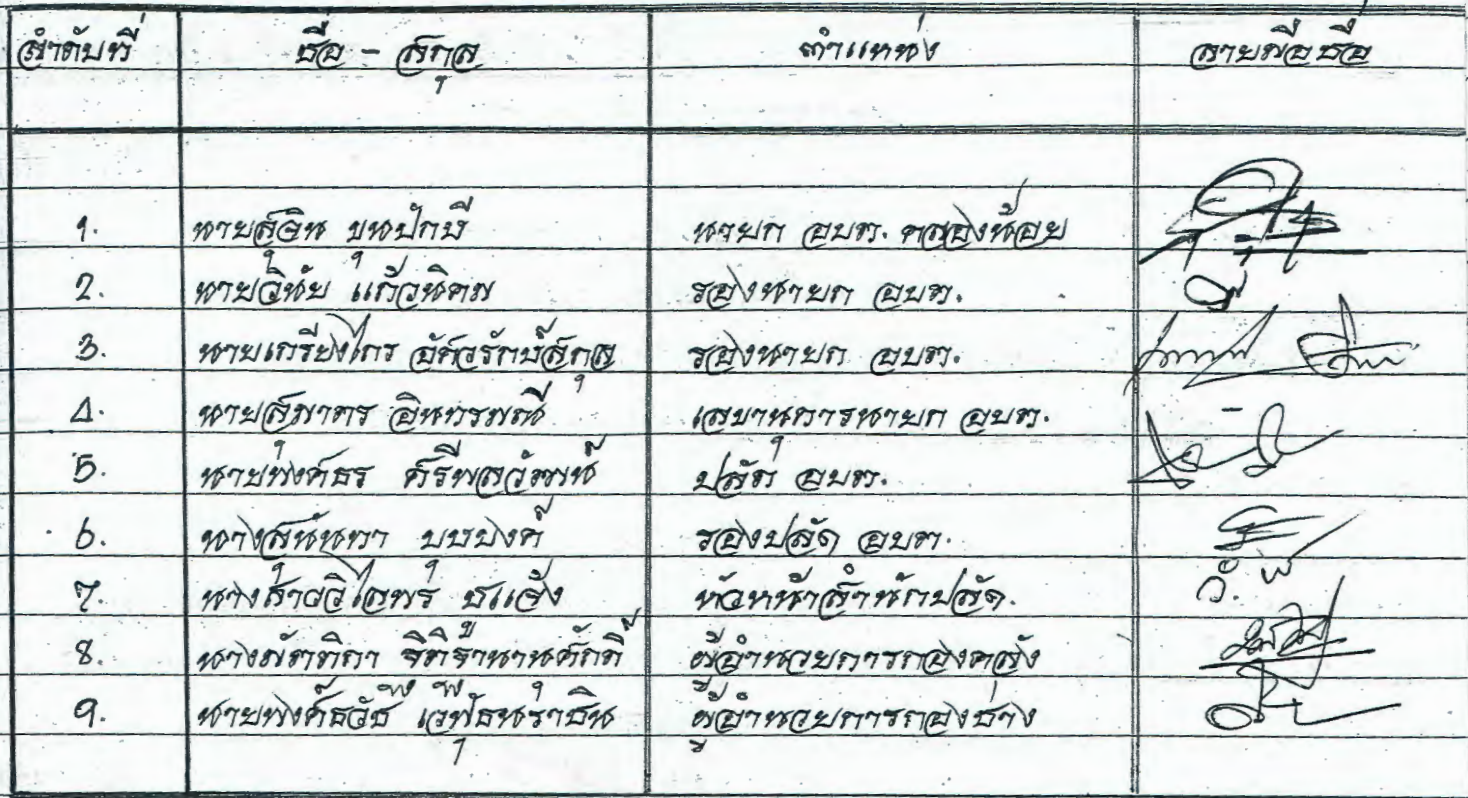 ลำดับที่ ชื่อ - สกุล ตำแหน่ง ลายมือชื่อ
1. นายสุจิน ขุนปักษี นายก อบต. คลองน้อย
2. นายวินัย แก้วนิคม รองนายก อบต.
3. นายเกรียงไกร อัศวรักษ์สกุล รองนายก อบต.
4. นายสุมาตร อินทรมณี เลขานุการนายก อบต.
5. นายพงศ์ธร ศรีพลวัฒน์ ปลัด อบต.
6. นางสุนันทา บุษบงค์ รองปลัด อบต.
7. นางสาววิไลพร ชูแจ้ง หัวหน้าสำนักปลัด.
8. ผู้อำนวยการกองคลัง
9. นายพงศ์ธวัช ผู้อำนวยการกองช่าง